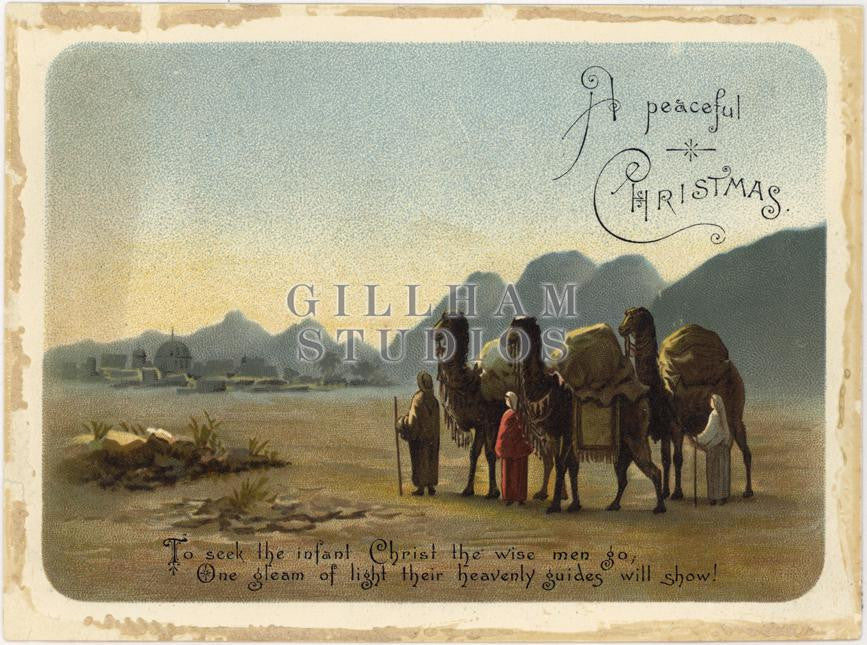 A peaceful
CHRISTMAS.
GILLHAM
STUDIOS
To seek the infant Christ the wise men go,
One gleam of light their heavenly guides will show!